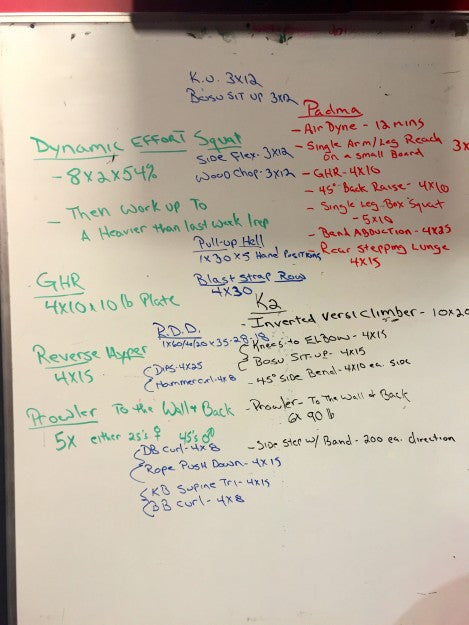 K.U. 3x12
Bosu SIT UP 3x12
Dynamic EFFORT Squat
- 8x2x54%
- Then work up To
A Heavier than last week 1rep
Side Flex- 3x12
Wood Chop- 3x12
Pull-up Hell
1x30x5 Hand Positions
Blast Strap Row
4x30
GHR
4x10x10 lb Plate
Reverse Hyper
4x15
Prowler To the Wall & Back
5x either 25's ♀ 45's ♂
R.D.D.
Dips 4x25
Hammer curl 4x8
DB curl- 4x8
Rope Push Down- 4x15
KB Supine Tri- 4x15
BB curl- 4x8
Padma
- Air Dyne - 12 mins
- Single Arm/Leg Reach
on a small Board
- GHR- 4x10
- 45° Back Raise- 4x10
- Single Leg Box Squat
- 5x10
- Band ABDUCTION- 4x25
- Rear Stepping Lunge
4x15
K2
- Inverted Versi Climber - 10x20
Knees to ELBOW- 4x15
Bosu SIT-up- 4x15
- 45° Side Bend- 4x10 ea. side
- Prowler- To the Wall & Back
6x 90 lb
- Side Step w/ Band- 200 ea. direction